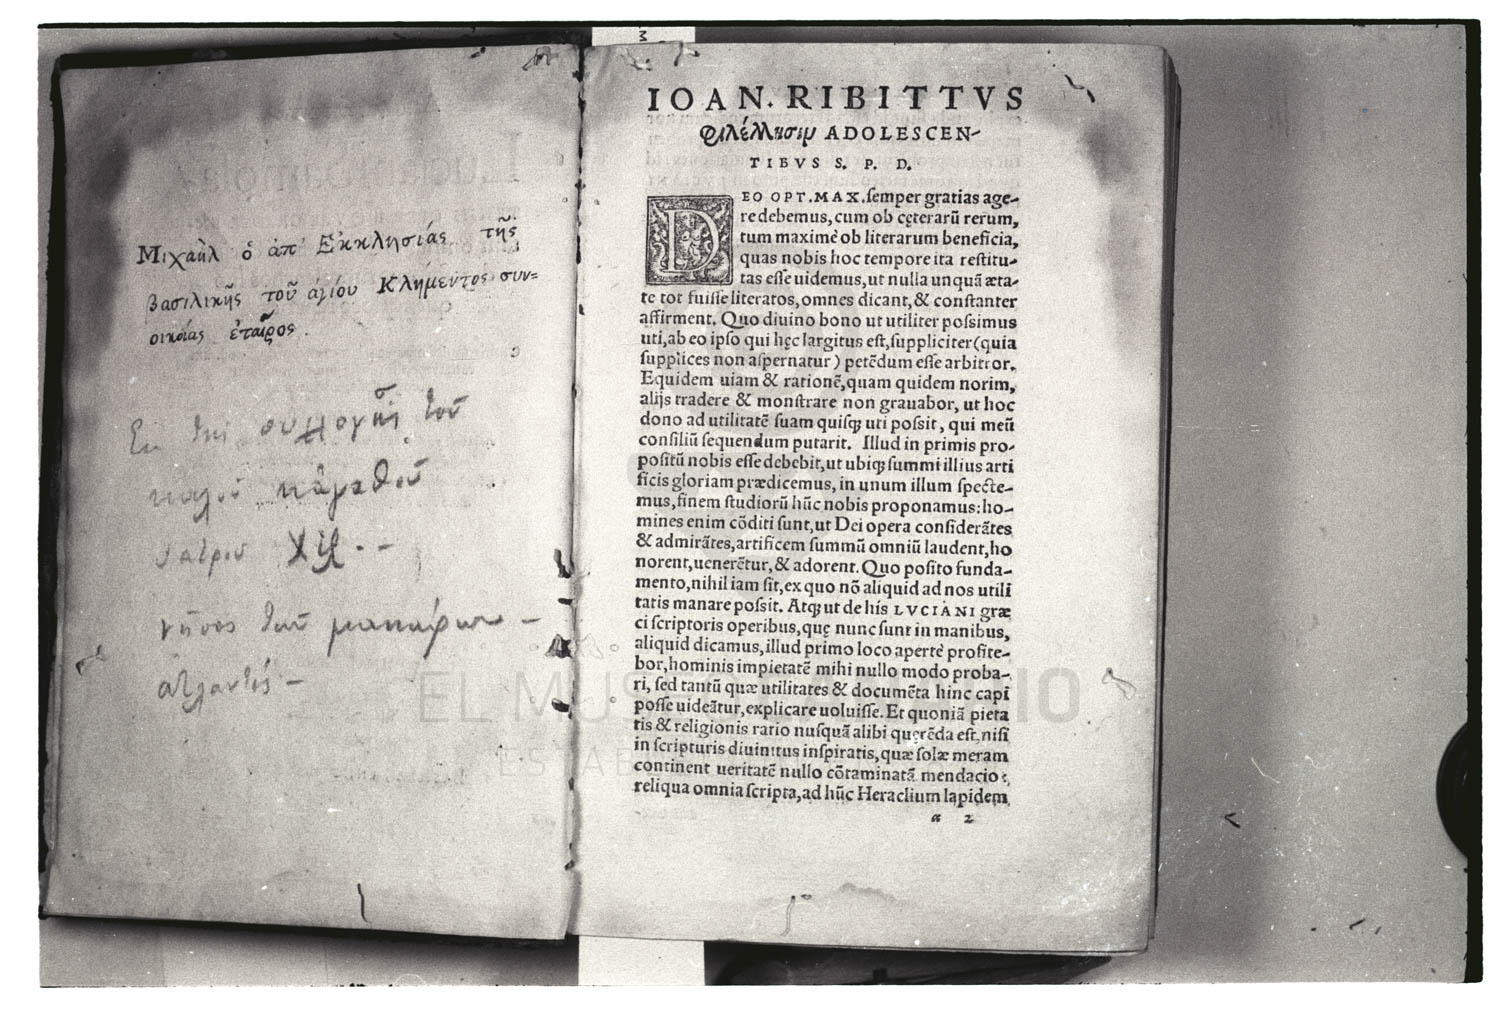 Μιχαὴλ ὁ ἀπ' Ἐκκλησίας τῆς
βασιλικῆς τοῦ ἁγίου Κλήμεντος συν=
οικίας ἑταῖρος.
Ἐκ τῆς συλλογῆς τοῦ
καλοῦ κἀγαθοῦ
ἰατροῦ Χιλ. -
νῆσος τῶν μακάρων -
ἀτλαντίς -
IOAN. RIBITTVS
Φιλέλλησιμ ADOLESCEN-
TIBVS S. P. D.
DEO OPT. MAX. semper gratias age-
re debemus, cum ob cęterarū rerum,
tum maximè ob literarum beneficia,
quas nobis hoc tempore ita restitu-
tas esse uidemus, ut nulla unquā æta-
te tot fuisse literatos, omnes dicant, & constanter
affirment. Quo diuino bono ut utiliter possimus
uti, ab eo ipso qui hęc largitus est, suppliciter (quia
supplices non aspernatur) petēdum esse arbitror.
Equidem uiam & rationē, quam quidem norim,
alijs tradere & monstrare non grauabor, ut hoc
dono ad utilitatē suam quisq; uti possit, qui meū
consiliū sequendum putarit. Illud in primis pro-
positū nobis esse debebit, ut ubiq; summi illius arti
ficis gloriam prædicemus, in unum illum specte-
mus, finem studiorū hūc nobis proponamus: ho-
mines enim cōditi sunt, ut Dei opera considerātes
& admirātes, artificem summū omniū laudent, ho
norent, uenerētur, & adorent. Quo posito funda-
mento, nihil iam sit, ex quo nō aliquid ad nos utili
tatis manare possit. Atq; ut de his LVCIANI græ
ci scriptoris operibus, quę nunc sunt in manibus,
aliquid dicamus, illud primo loco apertè profite-
bor, hominis impietatē mihi nullo modo proba-
ri, sed tantū quæ utilitates & documēta hinc capi
posse uideātur, explicare uoluisse. Et quoniā pieta
tis & religionis ratio nusquā alibi quęrēda est, nisi
in scripturis diuinitus inspiratis, quæ solæ meram
continent ueritatē nullo cōtaminatā mendacio:
reliqua omnia scripta, ad hūc Heraclium lapidem
a 2